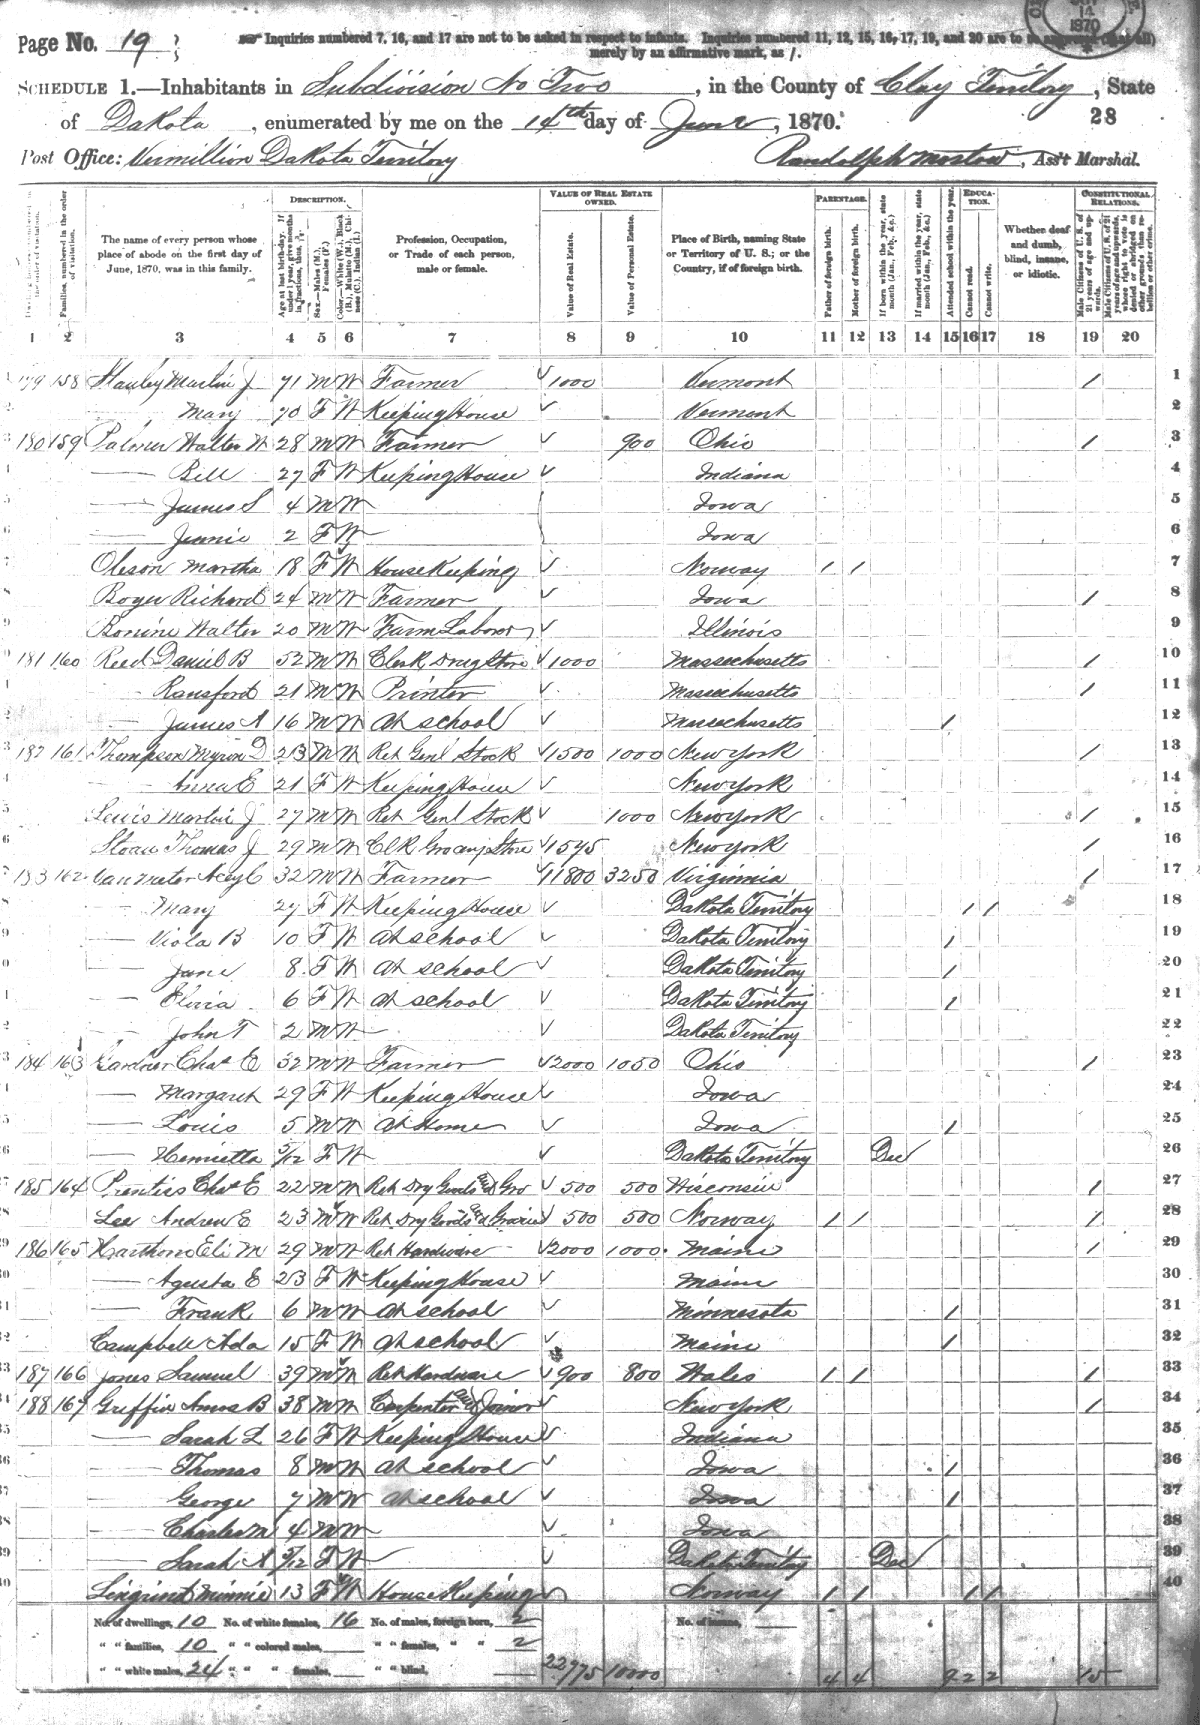 Page No. 19
Inquiries numbered 7, 16, and 17 are not to be asked in respect to infants. Inquiries numbered 11, 12, 15, 16, 17, 19, and 20 are to
merely by an affirmative mark, as /.
14
1870
SCHEDULE 1.—Inhabitants in Subdivision No Two, in the County of Clay Teritory, State
of Dakota, enumerated by me on the 14th day of June, 1870.
28
Post Office: Vermillion Dakota Teritory
Randolph Mostow, Ass't Marshal.
DESCRIPTION.
VALUE OF REAL ESTATE OWNED.
PARENTAGE.
EDUCATION.
CONSTITUTIONAL RELATIONS.
Families, numbered in the order of visitation.
The name of every person whose place of abode on the first day of June, 1870, was in this family.
Age at last birth-day. If under 1 year, give months in fractions, thus, 3/12.
Sex.—Males (M.), Females (F.)
Color.—White (W.), Black (B.), Mulatto (M.), Chinese (C.), Indian (I.)
Profession, Occupation, or Trade of each person, male or female.
Value of Real Estate.
Value of Personal Estate.
Place of Birth, naming State or Territory of U. S.; or the Country, if of foreign birth.
Father of foreign birth.
Mother of foreign birth.
If born within the year, state month (Jan., Feb., &c.)
If married within the year, state month (Jan., Feb., &c.)
Attended school within the year.
Cannot read.
Cannot write.
Whether deaf and dumb, blind, insane, or idiotic.
Male Citizens of U. S. of 21 years of age and upwards.
Male Citizens of U. S. of 21 years of age and upwards, whose right to vote is denied or abridged on other grounds than rebellion or other crime.
1 2 3 4 5 6 7 8 9 10 11 12 13 14 15 16 17 18 19 20
179 158 Stanley Martin J 71 M W Farmer 1000 Vermont / 1
Mary 70 F W Keeping House Vermont 2
180 159 Palmer Walter W 28 M W Farmer 900 Ohio / 3
Bell 27 F W Keeping House Indiana 4
James S 4 M W Iowa 5
Jennie 2 F W Iowa 6
Oleson Martha 18 F W House Keeping Norway / / 7
Boyer Richard 24 M W Farmer Iowa / 8
Bonine Walter 20 M W Farm Labor Illinois 9
181 160 Reed Daniel B 52 M W Clerk Drug Store 1000 Massachusetts / 10
Ransford 21 M W Printer Massachusetts / 11
James A 16 M W At school Massachusetts / 12
182 161 Thompson Myron D 23 M W Ret Genl Stock 1500 1000 New York / 13
Anna E 21 F W Keeping House New York 14
Lewis Martin J 27 M W Ret Genl Stock 1000 New York / 15
Sloan Thomas J 29 M W Clk Grocery Store 1575 New York / 16
183 162 Van Meter Acey C 32 M W Farmer 11800 3250 Virginnia / 17
Mary 27 F W Keeping House Dakota Teritory / / 18
Viola B 10 F W At school Dakota Teritory / 19
Jane 8 F W At school Dakota Teritory / 20
Elvira 6 F W At school Dakota Teritory / 21
John T 2 M W Dakota Teritory 22
184 163 Gardner Chas E 32 M W Farmer 2000 1050 Ohio / 23
Margaret 29 F W Keeping House Iowa 24
Louis 5 M W At Home Iowa / 25
Henrietta 5/12 F W Dakota Teritory Dec 26
185 164 Prentiss Chas E 22 M W Ret Dry Goods and Gro 500 500 Wisconsin / 27
Lee Andrew E 23 M W Ret Dry Goods and Groceries 500 500 Norway / / / 28
186 165 Harthorn Eli M 29 M W Ret Hardware 2000 1000 Maine / 29
Agusta E 23 F W Keeping House Maine 30
Frank 6 M W At school Minnesota / 31
Campbell Ada 15 F W At school Maine / 32
187 166 Jones Samuel 39 M W Ret Hardware 900 800 Wales / / / 33
188 167 Griffin Amos B 38 M W Carpenter and Joiner New York / 34
Sarah L 26 F W Keeping House Indiana 35
Thomas 8 M W At school Iowa / 36
George 7 M W At school Iowa / 37
Charles M 4 M W Iowa 38
Sarah A 5/12 F W Dakota Teritory Dec 39
Minnie 13 F W House Keeping Norway / / / / 40
No. of dwellings, 10 No. of white females, 16 No. of males, foreign born, 2 No. of insane,
" " families, 10 " " colored males, " " females, " " 2
" " white males, 24 " " " females, " " blind, 22775 10000 4 4 9 2 2 15